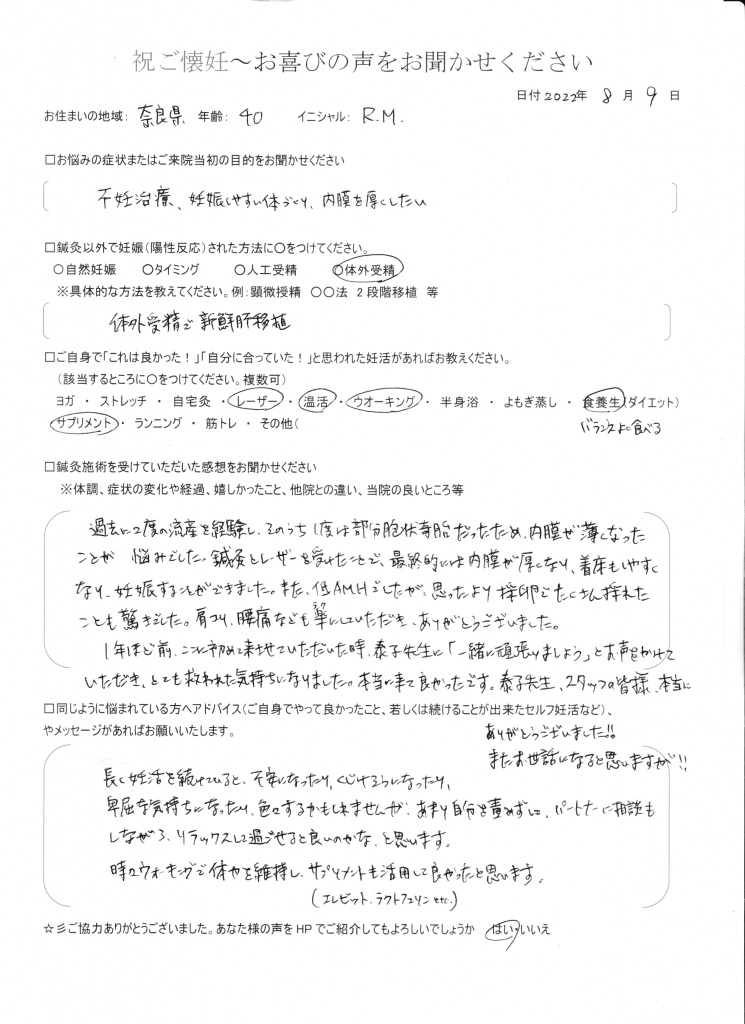 祝ご懐妊～お喜びの声をお聞かせください
日付2022年 8月 9日
お住まいの地域: 奈良県 年齢: 40 イニシャル: R.M.
□お悩みの症状またはご来院当初の目的をお聞かせください
不妊治療、妊娠しやすい体づくり、内膜を厚くしたい
□鍼灸以外で妊娠(陽性反応)された方法に○をつけてください。
○自然妊娠 ○タイミング ○人工受精 ○体外受精
※具体的な方法を教えてください。例:顕微授精 ○○法 2段階移植 等
体外受精で新鮮胚移植
□ご自身で「これは良かった!」「自分に合っていた!」と思われた妊活があればお教えください。
(該当するところに○をつけてください。複数可)
ヨガ ・ ストレッチ ・ 自宅灸 ・ レーザー ・ 温活 ・ ウオーキング ・ 半身浴 ・ よもぎ蒸し ・ 食養生(ダイエット)
サプリメント ・ ランニング ・ 筋トレ ・ その他(
バランスよく食べる
□鍼灸施術を受けていただいた感想をお聞かせください
※体調、症状の変化や経過、嬉しかったこと、他院との違い、当院の良いところ等
過去に2度の流産を経験し、そのうち1度は部分胞状奇胎だったため、内膜が薄くなった
ことが 悩みでした。鍼灸とレーザーを受けたことで、最終的には内膜が厚くなり、着床もしやすく
なり、妊娠することができました。また、低AMHでしたが、思ったより採卵でたくさん採れた
ことも驚きでした。肩こり、腰痛なども楽にしていただき、ありがとうございました。
1年ほど前、ここに初めて来させていただいた時、泰子先生に「一緒に頑張りましょう」とお声をかけて
いただき、とても救われた気持ちになりました。本当に来て良かったです。泰子先生、スタッフの皆様、本当に
ありがとうございました!!
またお世話になると思いますが!!
□同じように悩まれている方へアドバイス(ご自身でやって良かったこと、若しくは続けることが出来たセルフ妊活など)、
やメッセージがあればお願いいたします。
長く妊活を続けていると、不安になったり、くじけそうになったり、
卑屈な気持ちになったり、色々するかもしれませんが、あまり自分を責めずに、パートナーに相談も
しながら、リラックスして過ごせると良いのかな、と思います。
時々ウォーキングで体力を維持し、サプリメントも活用して良かったと思います。
(エレビット、ラクトフェリン etc.)
☆彡ご協力ありがとうございました。あなた様の声をHPでご紹介してもよろしいでしょうか はい・いいえ